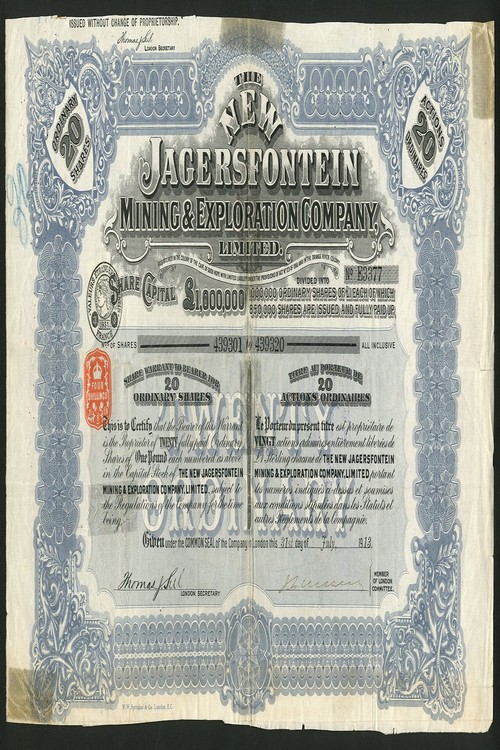 ISSUED WITHOUT CHANGE OF PROPRIETORSHIP.
LONDON SECRETARY
ORDINARY
20
SHARES
ACTIONS
20
ORDINAIRES
THE
NEW
JAGERSFONTEIN
MINING & EXPLORATION COMPANY,
LIMITED.
SHARE CAPITAL £1,000,000
DIVIDED INTO
1,000,000 ORDINARY SHARES OF £1 EACH OF WHICH
SHARES ARE ISSUED AND FULLY PAID UP.
FRANCE
Nos. OF SHARES 439301 to 439320 ALL INCLUSIVE
FOUR
SHILLINGS
SHARE WARRANT TO BEARER FOR
20
ORDINARY SHARES
This is to Certify that the Bearer of this Warrant
is the Proprietor of TWENTY fully paid Ordinary
Shares of One Pound each numbered as above
in the Capital Stock of THE NEW JAGERSFONTEIN
MINING & EXPLORATION COMPANY, LIMITED, subject to
the Regulations of the Company for the time
being.
TITRE AU PORTEUR DE
20
ACTIONS ORDINAIRES
Le Porteur du présent titre est propriétaire de
VINGT actions ordinaires entièrement libérées de
£1 Sterling chacune de THE NEW JAGERSFONTEIN
MINING & EXPLORATION COMPANY, LIMITED, portant
les numéros indiqués ci-dessus et soumises
aux conditions stipulées dans les Statuts et
autres Réglements de la Compagnie.
Given under the COMMON SEAL of the Company in London this 31st day of July, 1913.
LONDON SECRETARY
MEMBER
OF LONDON
COMMITTEE.
W. W. Sprague & Co. London, E.C.